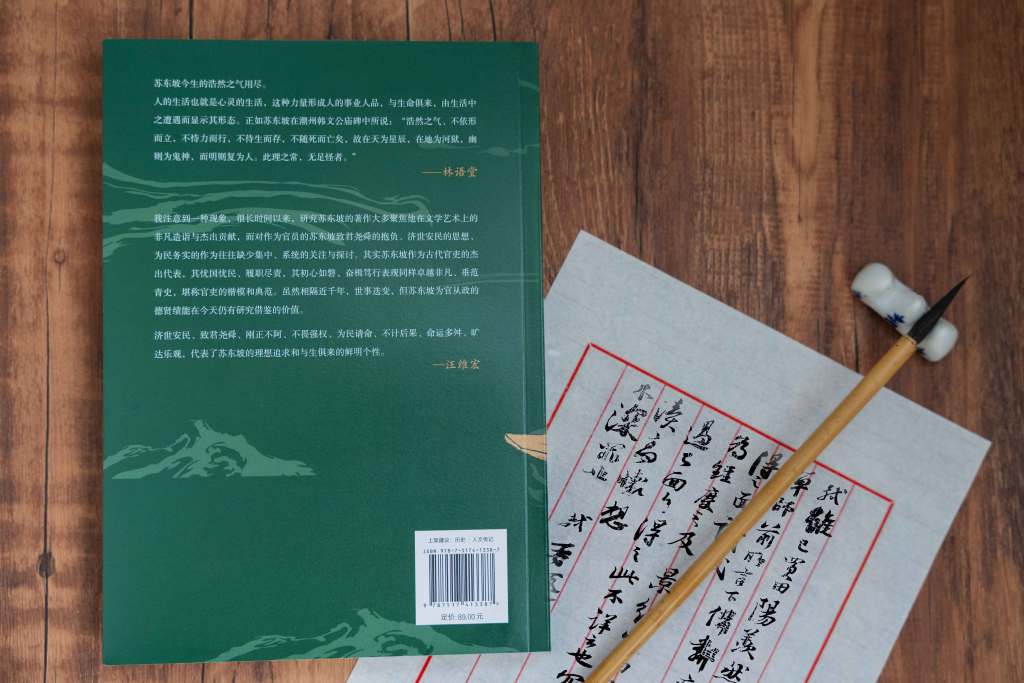 苏东坡今生的浩然之气用尽。
人的生活也就是心灵的生活，这种力量形成人的事业人品，与生命俱来，由生活中
之遭遇而显示其形态。正如苏东坡在潮州韩文公庙碑中所说：“浩然之气、不依形
而立，不恃力而行，不待生而存，不随死而亡矣，故在天为星辰，在地为河狱，幽
则为鬼神，而明则复为人。此理之常，无足怪者。”
——林语堂
我注意到一种现象，很长时间以来，研究苏东坡的著作大多聚焦他在文学艺术上的
非凡造诣与杰出贡献，而对作为官员的苏东坡致君尧舜的抱负、济世安民的思想、
为民务实的作为往往缺少集中、系统的关注与探讨。其实苏东坡作为古代官吏的杰
出代表，其忧国忧民、履职尽责，其初心如磐、奋楫笃行表现同样卓越非凡、垂范
青史，堪称官吏的楷模和典范。虽然相隔近千年，世事迭变，但苏东坡为官从政的
德贤绩能在今天仍有研究借鉴的价值。
济世安民、致君尧舜、刚正不阿、不畏强权、为民请命、不计后果、命运多舛、旷
达乐观，代表了苏东坡的理想追求和与生俱来的鲜明个性。
——汪维宏
上架建议：历史·人文传记
ISBN 978-7-5174-1338-7
9 787517 413387 >
定价：89.00 元
軾雖已買田陽羨然
單師前所言下備鄰
得之面議
為經度之及景
過已面白得之此不詳云也冗
瀆高懷想
不深罪也
軾再